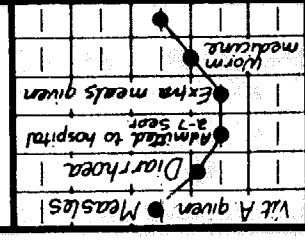 Vit A given Measles
Diarrhoea
Admitted to hospital
2-7 Sept
Extra meals given
Worm
medicine